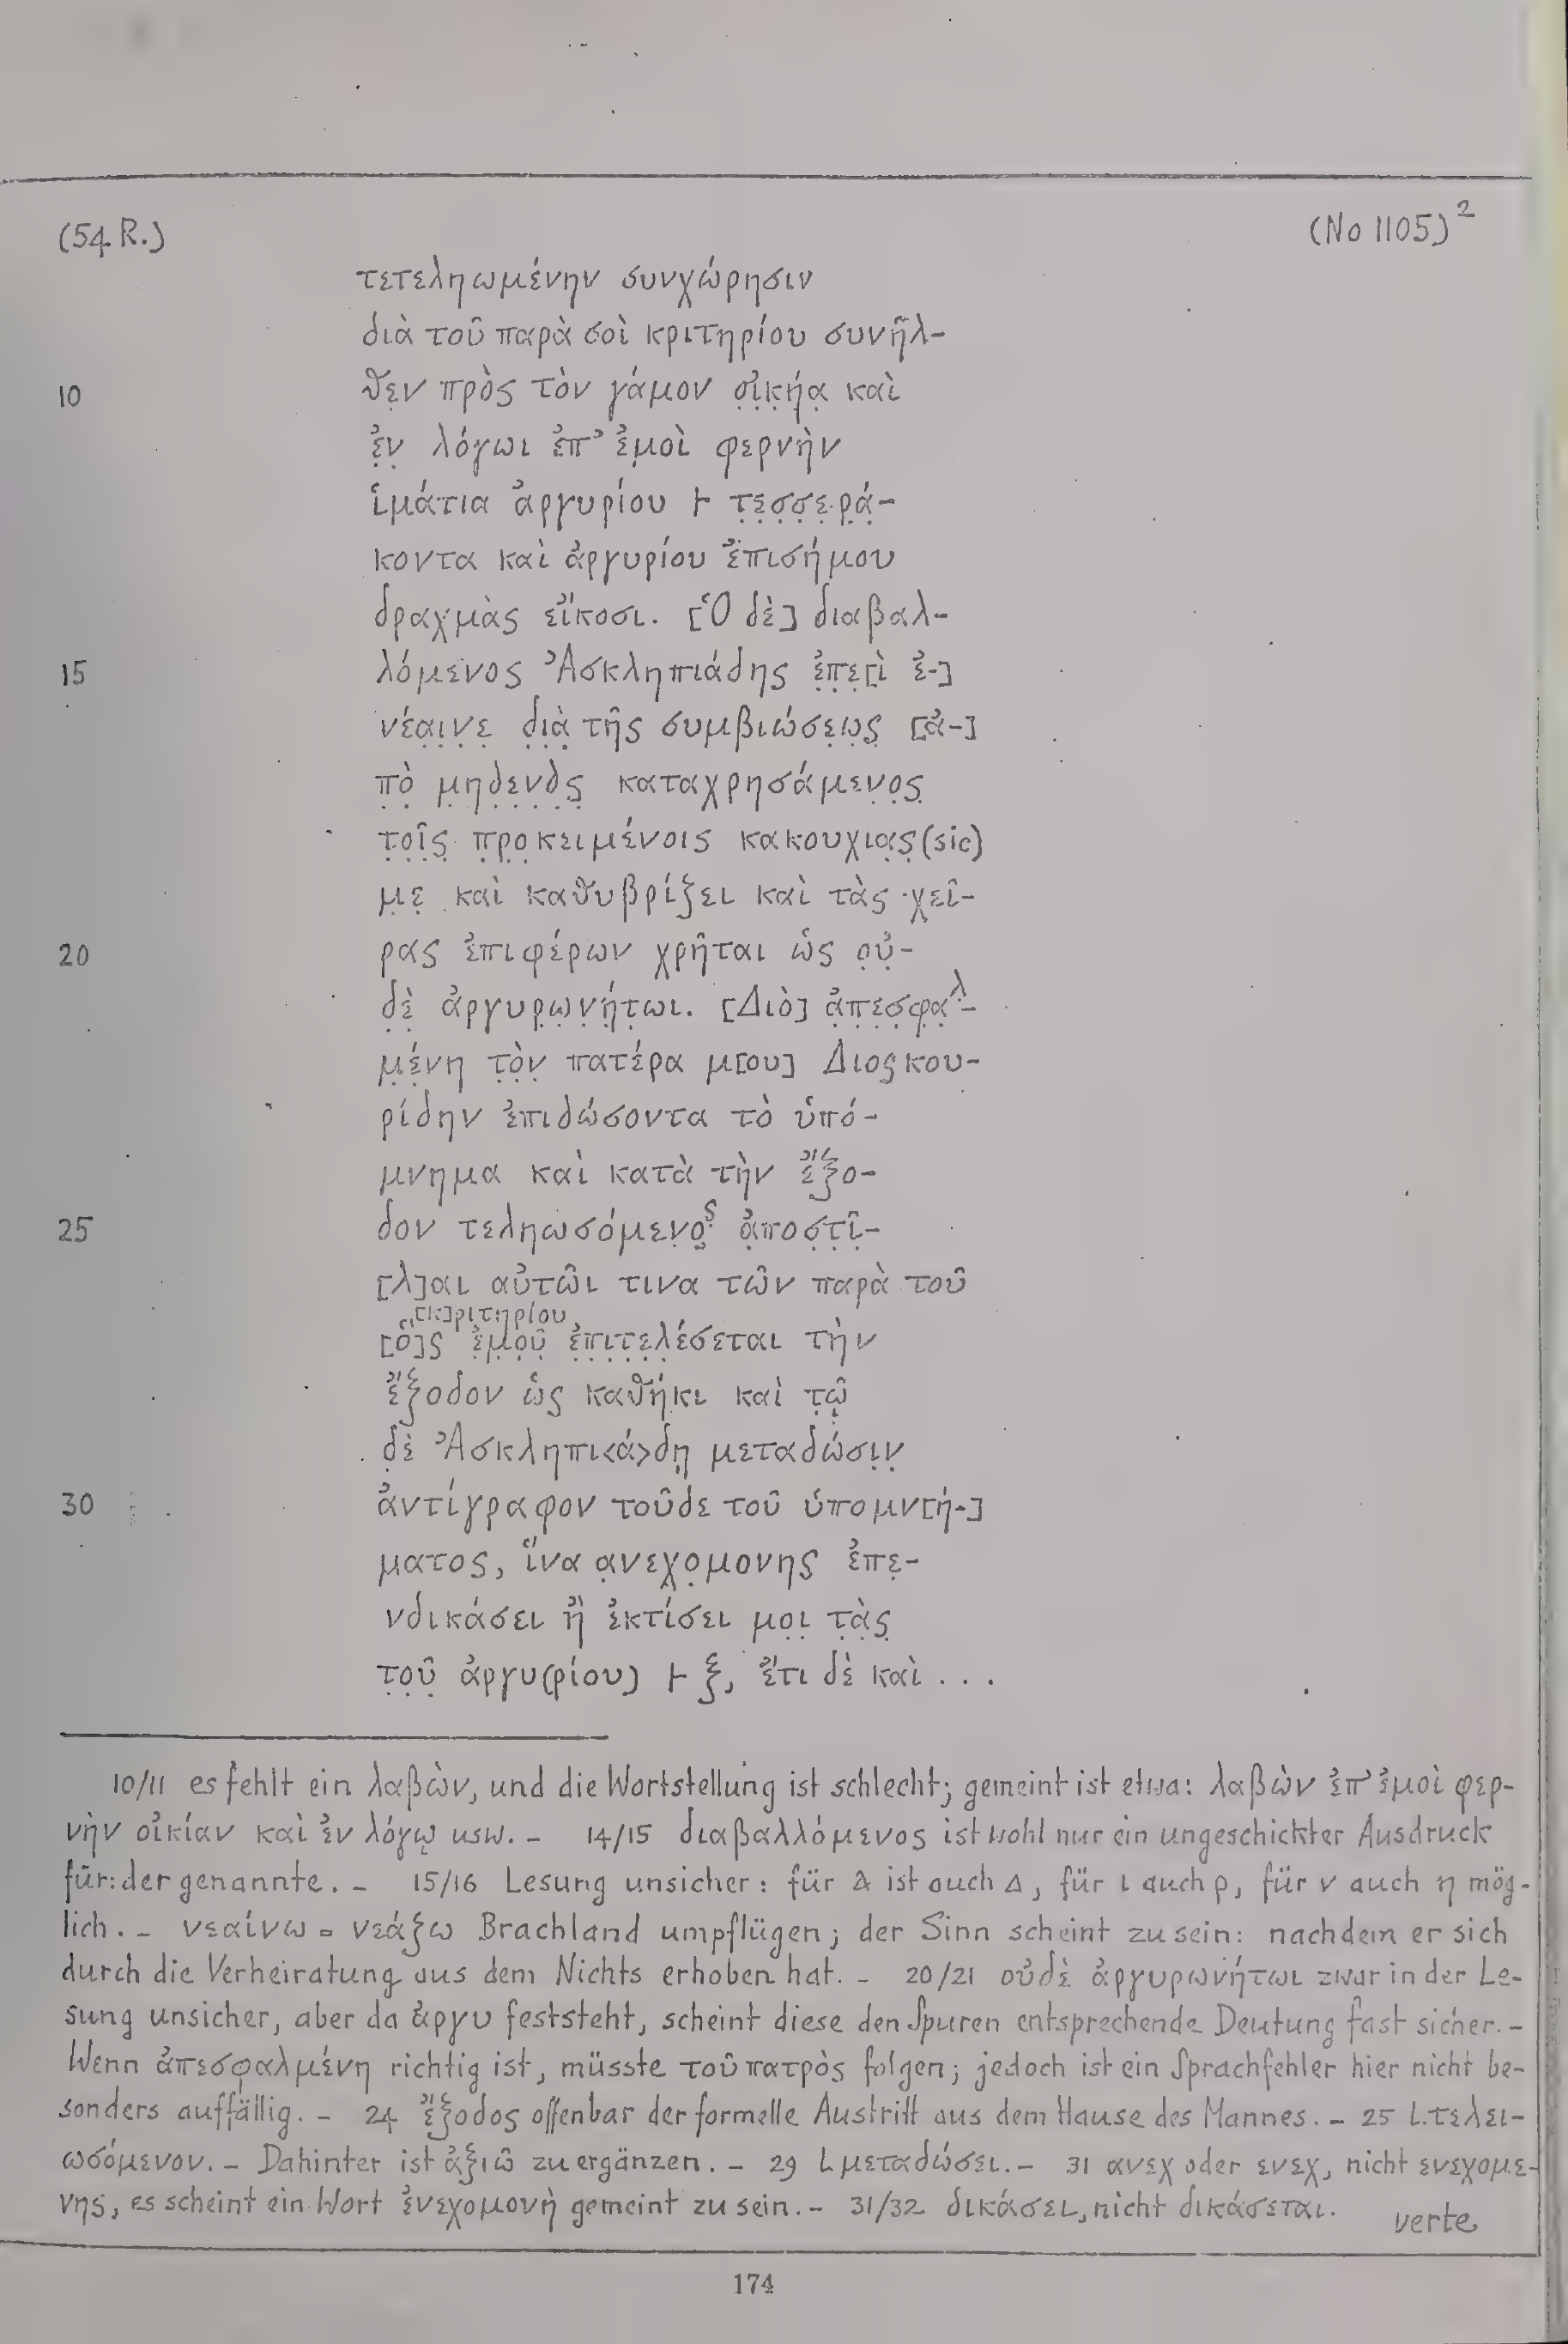 (54 R.) (No 1105)²
τετεληωμένην συνχώρησιν
διὰ τοῦ παρὰ σοὶ κριτηρίου συνῆλ-
10 θ̣εν πρὸς τὸν γάμον ο̣ἰ̣κ̣ή̣α̣ καὶ
ἐ̣ν̣ λόγωι ἐπ’ ἐ̣μοὶ φερνὴν
ἱμάτια ἀργυρίου 𐅂 τ̣ε̣σ̣σ̣ε̣ρ̣ά̣-
κοντα καὶ ἀργυρίου ἐπισήμου
δραχμὰς εἴκοσι. [Ὁ δὲ] διαβαλ-
15 λόμενος Ἀσκληπιάδης ἐ̣π̣ε̣[ὶ ἐ-]
νέα̣ι̣ν̣ε̣ δ̣ι̣ὰ̣ τῆς συμβιώσε̣ω̣ς̣ [ἀ-]
π̣ὸ̣ μ̣η̣δ̣ε̣ν̣ὸ̣ς̣ καταχρησάμεν̣ο̣ς̣
τ̣ο̣ῖ̣ς̣ π̣ρ̣ο̣κειμένοις κακουχια̣ς̣ (sic)
μ̣ε̣ καὶ καθυβρίζει καὶ τὰς χεῖ-
20 ρας ἐπιφέρων χρῆται ὡς ο̣ὐ̣-
δ̣ὲ̣ ἀργυρ̣ω̣ν̣ή̣τ̣ωι. [Διὸ] ἀ̣π̣ε̣σ̣φ̣α̣λ-
μ̣έ̣νη τ̣ὸ̣ν̣ πατέρα μ[ου] Διοςκου-
ρίδην ἐπιδώσοντα τὸ ὑπό-
μνημα καὶ κατὰ τὴν ἔξο-
25 δον τεληωσόμεν̣ο̣ς̣ ἀ̣ποσ̣τ̣ῖ̣-
[λ]αι αὐτῶι τινα τῶν παρὰ τοῦ
[κ]ρ̣ι̣τ̣η̣ρίου
[ὃ]ς ἐ̣μ̣ο̣ῦ̣ ἐ̣π̣ι̣τ̣ε̣λ̣έσεται τὴν
ἔξοδον ὡς καθήκι καὶ τ̣ῷ̣
δ̣ὲ Ἀσκληπι<ά>δῃ μεταδώσ̣ι̣ν̣
30 ἀντίγραφον τοῦδε τοῦ ὑπομν[ή-]
ματος, ἵνα α̣νεχο̣μονης ἐπε̣-
νδικάσει ἢ ἐκτίσει μο̣ι̣ τ̣ὰ̣ς̣
τ̣ο̣ῦ̣ ἀργυ(ρίου) 𐅂 ξ, ἔτι δὲ καὶ ...
10/11 es fehlt ein λαβὼν, und die Wortstellung ist schlecht; gemeint ist etwa: λαβὼν ἐπ’ ἐμοὶ φερ-
νὴν οἰκίαν καὶ ἐν λόγῳ usw. – 14/15 διαβαλλόμενος ist wohl nur ein ungeschickter Ausdruck
für: der genannte. – 15/16 Lesung unsicher: für α ist auch δ, für ι auch ρ, für ν auch η mög-
lich. – νεαίνω = νεάζω Brachland umpflügen; der Sinn scheint zu sein: nachdem er sich
durch die Verheiratung aus dem Nichts erhoben hat. – 20/21 οὐδὲ ἀργυρωνήτωι zwar in der Le-
sung unsicher, aber da ἀργυ feststeht, scheint diese den Spuren entsprechende Deutung fast sicher. –
Wenn ἀπεσφαλμένη richtig ist, müsste τοῦ πατρὸς folgen; jedoch ist ein Sprachfehler hier nicht be-
sonders auffällig. – 24 ἔξοδος offenbar der formelle Austritt aus dem Hause des Mannes. – 25 l. τελει-
ωσόμενον. – Dahinter ist ἀξιῶ zu ergänzen. – 29 l. μεταδώσει. – 31 ανεχ oder ενεχ, nicht ενεχομε-
νης, es scheint ein Wort ἐνεχομονὴ gemeint zu sein. – 31/32 δικάσει, nicht δικάσεται. verte
174